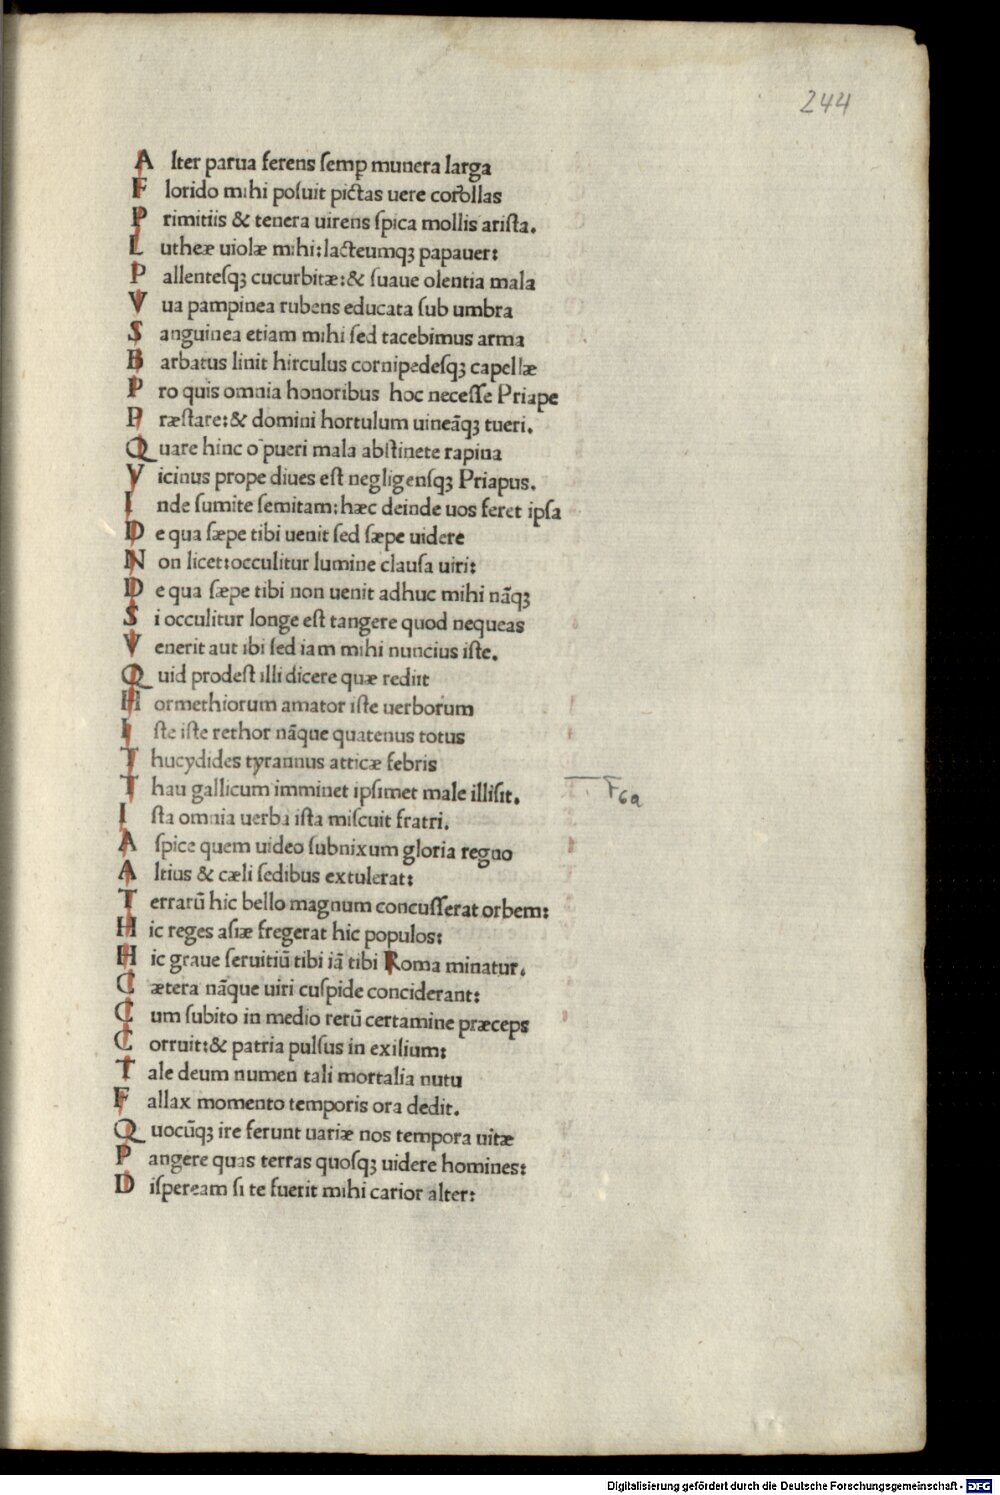 244
A lter parua ferens ſemꝑ munera larga
F lorido mihi poſuit pictas uere corollas
P rimitiis & tenera uirens ſpica mollis ariſta.
L utheæ uiolæ mihi:lacteumqꝫ papauer:
P allenteſqꝫ cucurbitæ:& ſuaue olentia mala
V ua pampinea rubens educata ſub umbra
S anguinea etiam mihi ſed tacebimus arma
B arbatus linit hirculus cornipedeſqꝫ capellæ
P ro quis omnia honoribus hoc neceſſe Priape
P ræſtare:& domini hortulum uineāqꝫ tueri.
Q uare hinc o pueri mala abſtinete rapina
V icinus prope diues eſt negligenſqꝫ Priapus.
I nde ſumite ſemitam:hæc deinde uos feret ipſa
D e qua ſæpe tibi uenit ſed ſæpe uidere
N on licet:occulitur lumine clauſa uiri:
D e qua ſæpe tibi non uenit adhuc mihi nāqꝫ
S i occulitur longe eſt tangere quod nequeas
V enerit aut ibi ſed iam mihi nuncius iſte.
Q uid prodeſt illi dicere quæ rediit
H ormethiorum amator iſte uerborum
I ſte iſte rethor nāque quatenus totus
T hucydides tyrannus atticæ febris
T hau gallicum imminet ipſimet male illiſit.
F6a
I ſta omnia uerba iſta miſcuit fratri.
A ſpice quem uideo ſubnixum gloria regno
A ltius & cæli ſedibus extulerat:
T errarū hic bello magnum concuſſerat orbem:
H ic reges aſiæ fregerat hic populos:
H ic graue ſeruitiū tibi iā tibi Roma minatur.
C ætera nāque uiri cuſpide conciderant:
C um ſubito in medio rerū certamine præceps
C orruit:& patria pulſus in exilium:
T ale deum numen tali mortalia nutu
F allax momento temporis ora dedit.
Q uocūqꝫ ire ferunt uariæ nos tempora uitæ
P angere quas terras quoſqꝫ uidere homines:
D iſpeream ſi te fuerit mihi carior alter:
Digitalisierung gefördert durch die Deutsche Forschungsgemeinschaft - DFG